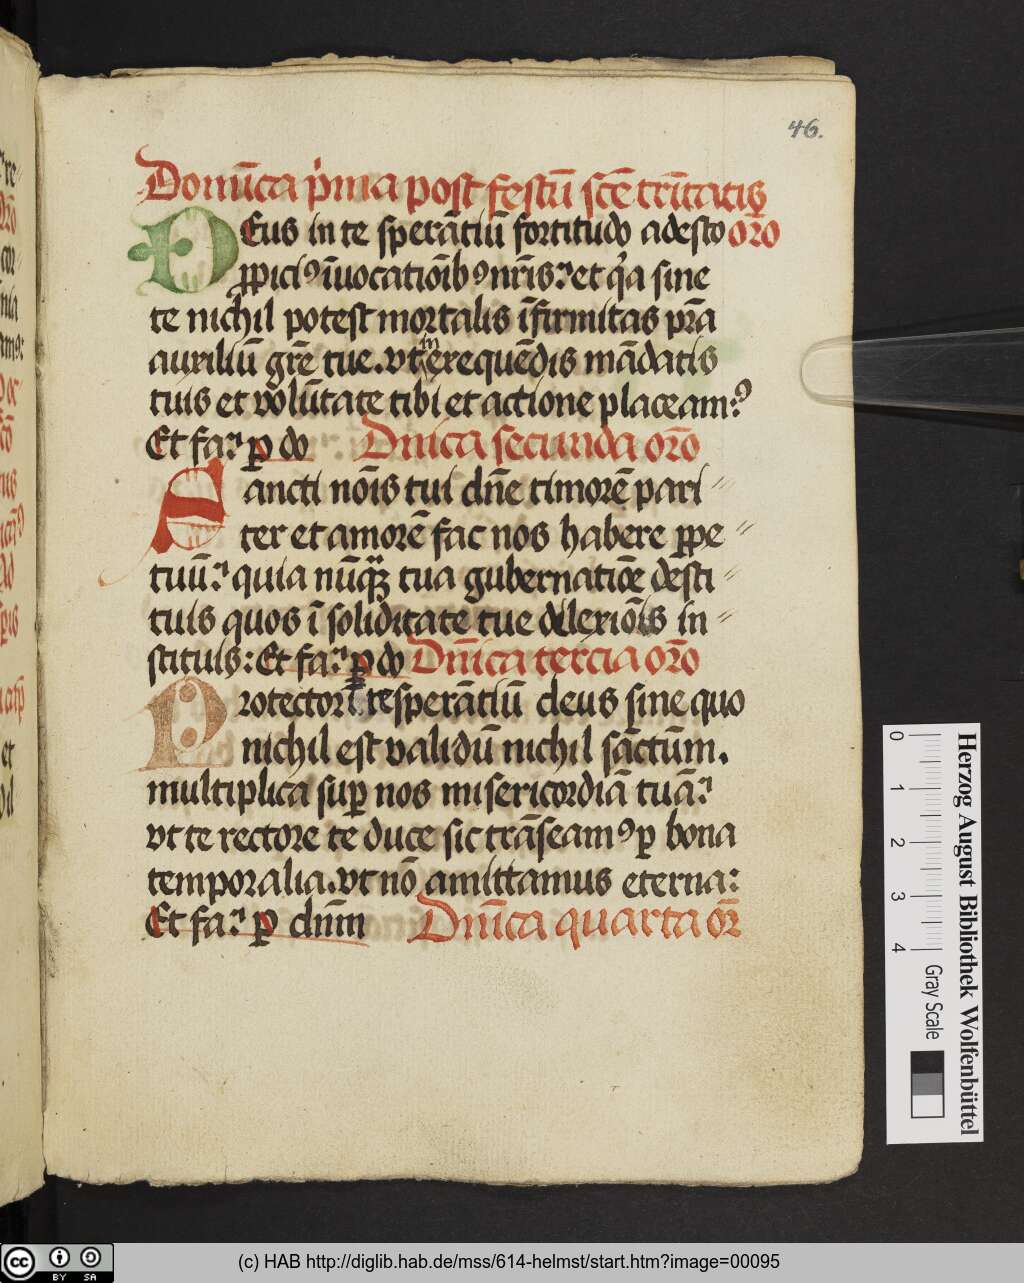 46.
Domīca p̄ma post festū scē trītatis
Deus in te sperātiū fortitudo adesto oro
ꝓpiciꝰ īuocatiōibꝰ nr̄is: et qͥa sine
te nichil potest mortalis īfirmitas pr̄a
auxiliū grē tue. vt in exequēdis mādatis
tuis et volūtate tibi et actione placeamꝰ
Et fa: ꝑ do Dnīca secunda orō
Sancti nōis tui dn̄e timorē pari
ter et amorē fac nos habere ꝑpe
tuū: quia nūqᷓꝫ tua gubernatiōe desti
tuis quos ī soliditate tue dilexiōis in
stituis: Et fa: ꝑ do Dnīca tercia orō
Protector ī te sperātiū deus sine quo
nichil est validū nichil sāctum.
multiplica suꝑ nos misericordiā tuā:
vt te rectore te duce sic trāseamꝰ ꝑ bona
temporalia. vt nō amittamus eterna:
Et fa: ꝑ dnm̄ Dnīca quarta or̄
0 1 2 3 4
Gray Scale
Herzog August Bibliothek Wolfenbüttel
cc BY SA
(c) HAB http://diglib.hab.de/mss/614-helmst/start.htm?image=00095